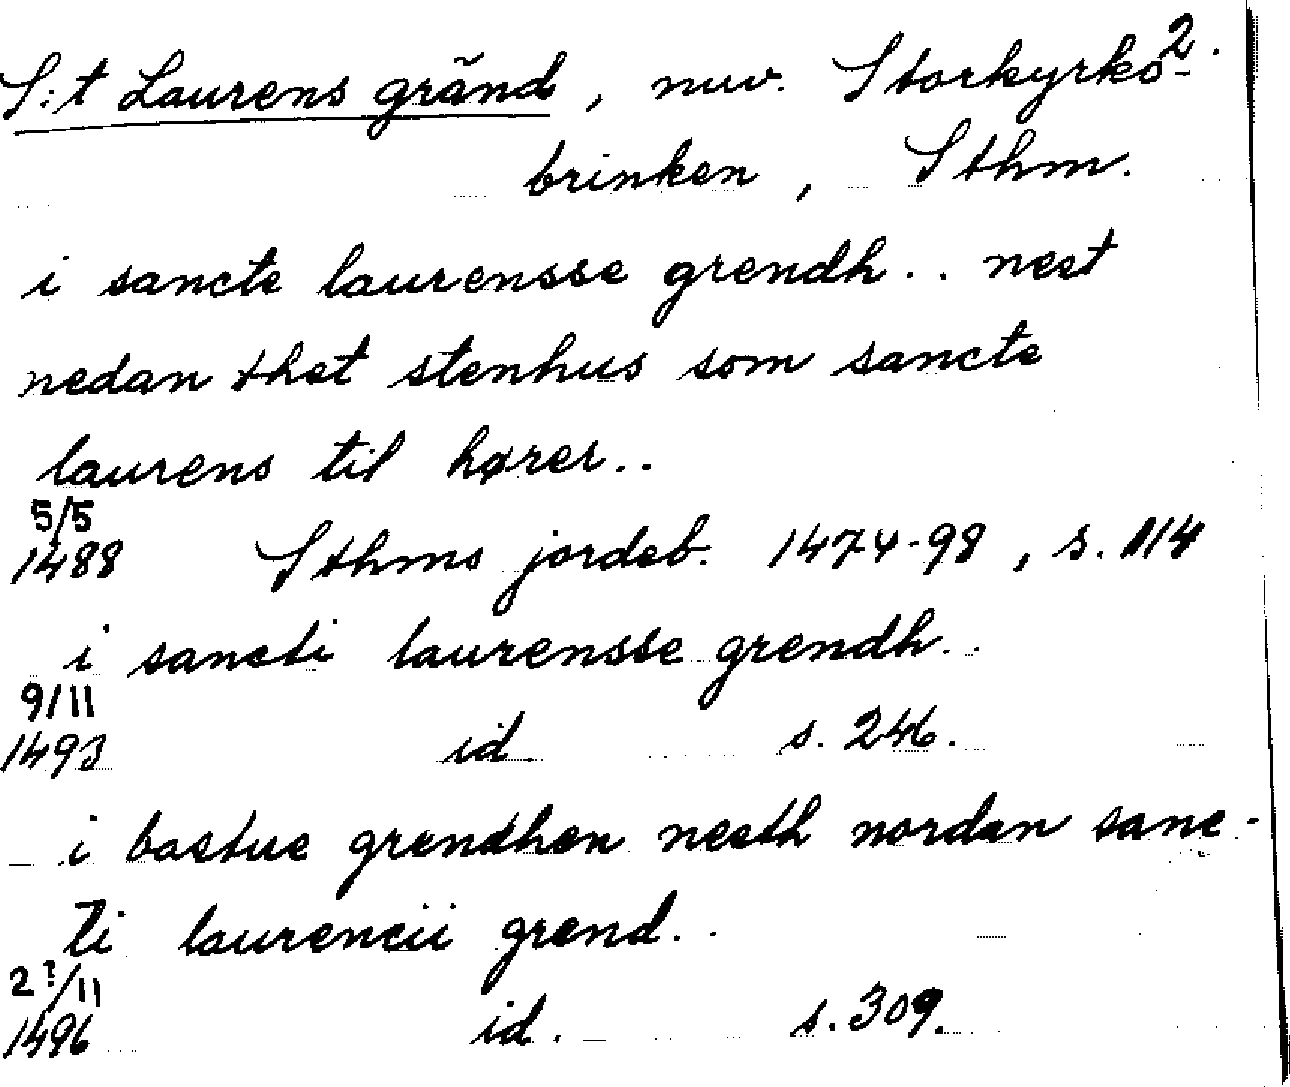 2.
S:t Laurens gränd, nuv. Storkyrko-
brinken, Sthm.
i sancte laurensse grendh.. nest
nedan thet stenhus som sancte
laurens til hører..
5/5
1488 Sthms jordeb. 1474-98, s. 114
i sancti laurensse grendh..
9/11
1493 id s. 246.
i bastue grendhen nesth nordan sanc-
ti laurencii grend..
2?/11
1496 id. s. 309.